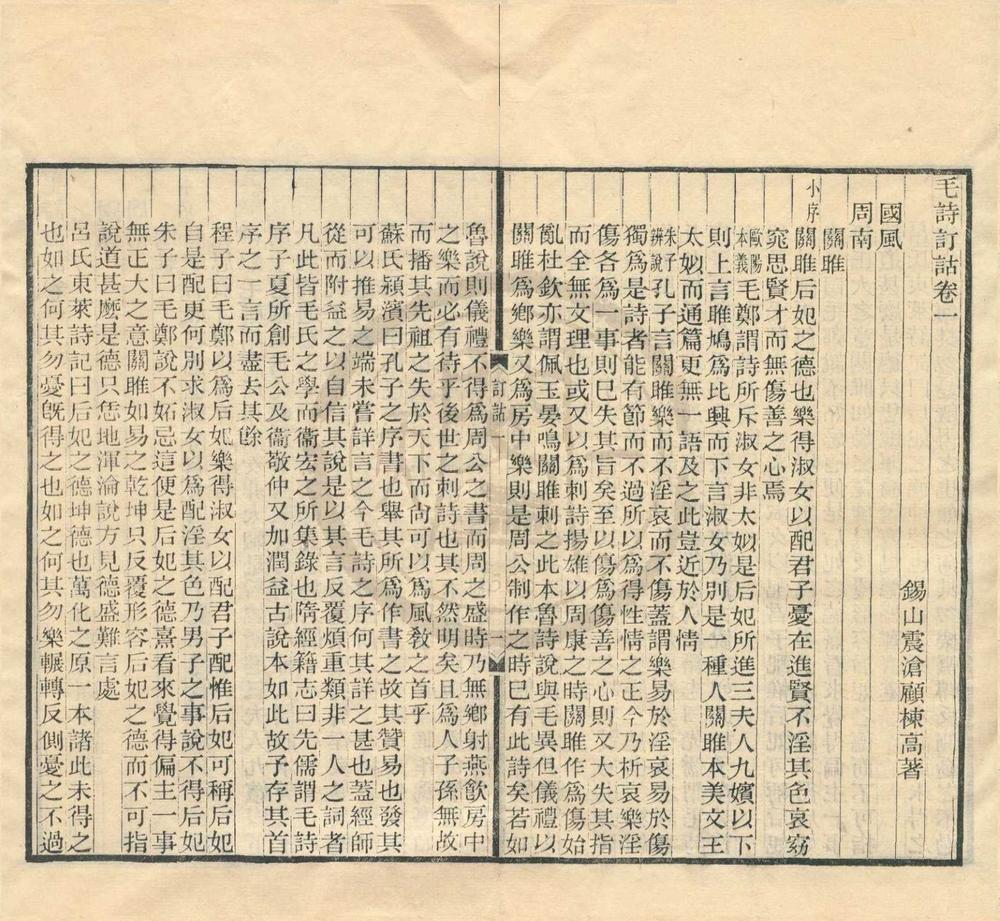 毛詩訂詁卷一
錫山震滄顧棟高著
國風
周南
關雎
小序
關雎后妃之德也樂得淑女以配君子憂在進賢不淫其色哀窈
窕思賢才而無傷善之心焉
歐陽本義毛鄭謂詩所斥淑女非太姒是后妃所進三夫人九嬪以下
則上言雎鳩為比興而下言淑女乃別是一種人關雎本美文王
太姒而通篇更無一語及之此豈近於人情
朱子辨說孔子言關雎樂而不淫哀而不傷蓋謂樂易於淫哀易於傷
獨為是詩者能有節而不過所以為得性情之正今乃析哀樂淫
傷各為一事則已失其旨矣至以傷為傷善之心則又大失其指
而全無文理也或又以為刺詩揚雄以周康之時關雎作為傷始
亂杜欽亦謂佩玉晏鳴關雎刺之此本魯詩說與毛異但儀禮以
關雎為鄉樂又為房中樂則是周公制作之時已有此詩矣若如
訂詁一
一
魯說則儀禮不得為周公之書而周之盛時乃無鄉射燕飲房中
之樂而必有待乎後世之刺詩也其不然明矣且為人子孫無故
而播其先祖之失於天下而尚可以為風敎之首乎
蘇氏潁濱曰孔子之序書也舉其所為作書之故其贊易也發其
可以推易之端未嘗詳言之今毛詩之序何其詳之甚也蓋經師
從而附益之以自信其說是以其言反覆煩重類非一人之詞者
凡此皆毛氏之學而衞宏之所集錄也隋經籍志曰先儒謂毛詩
序子夏所創毛公及衞敬仲又加潤益古說本如此故予存其首
序之一言而盡去其餘
程子曰毛鄭以為后妃樂得淑女以配君子配惟后妃可稱后妃
自是配更何別求淑女以為配淫其色乃男子之事說不得后妃
朱子曰毛鄭說不妬忌這便是后妃之德熹看來覺得偏主一事
無正大之意關雎如易之乾坤只反覆形容后妃之德而不可指
說道甚麽是德只恁地渾淪說方見德盛難言處
呂氏東萊詩記曰后妃之德坤德也萬化之原一本諸此未得之
也如之何其勿憂旣得之也如之何其勿樂輾轉反側憂之不過